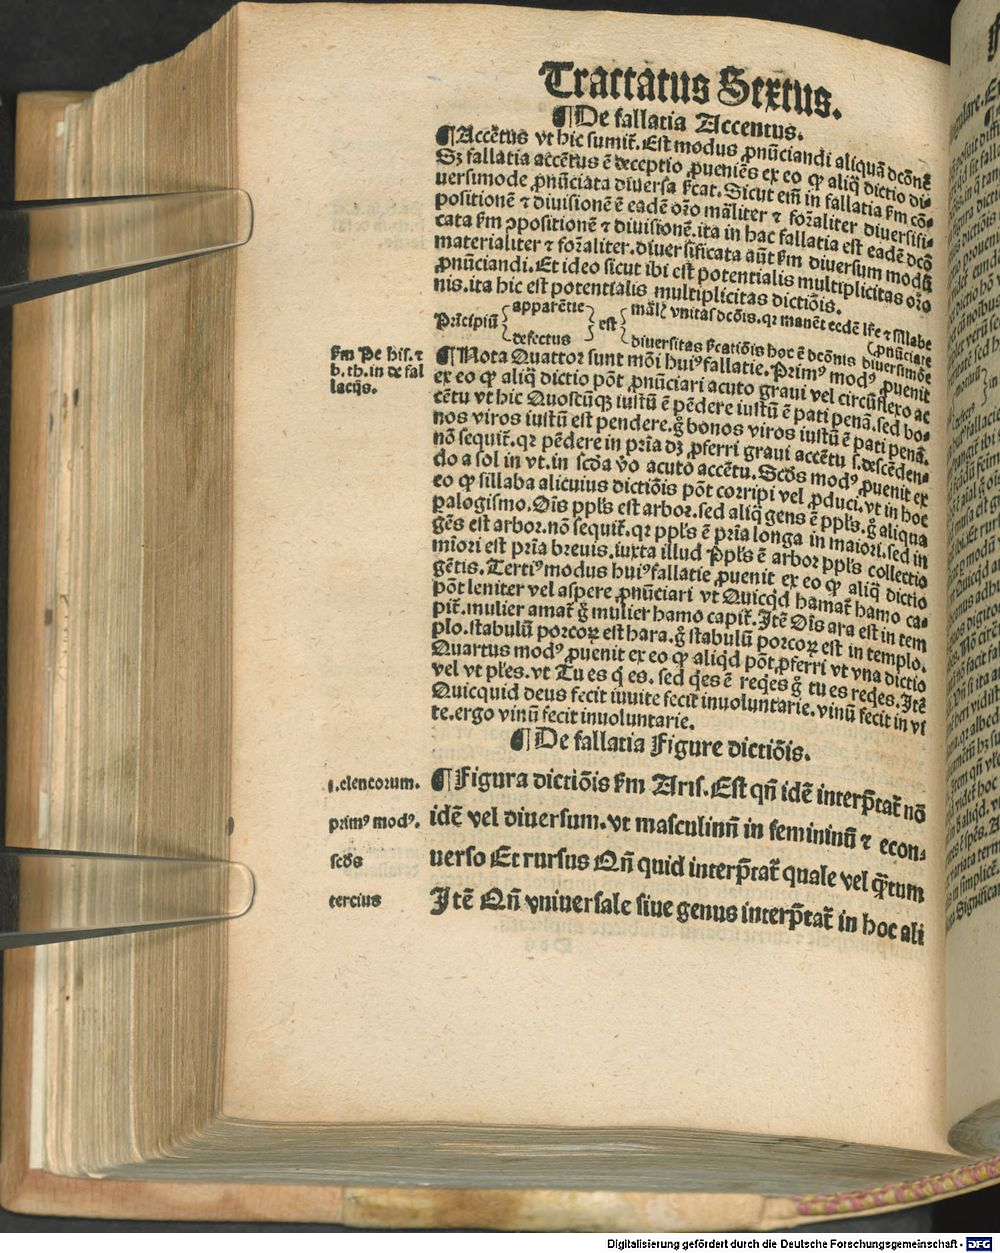 Tractatus Sextus.
¶De fallatia Accentus.
¶Accẽtus vt hic sumit̃. Est modus ꝓnũciandi aliquã dcõnẽ
Sȝ fallatia accẽtus ẽ deceptio ꝓueniẽs ex eo ꝙ aliq̃ dictio di⸗
uersimode ꝓnũciata diuersa ſ̃cat. Sicut em̃ in fallatia ẜm cõ⸗
positionẽ ⁊ diuisionẽ ẽ eadẽ oꝛo mãliter ⁊ foꝛaliter diuersifi⸗
cata ẜm ꝯpositionẽ ⁊ diuisionẽ. ita in hac fallatia est eadẽ dcõ
materialiter ⁊ foꝛaliter. diuersificata aũt ẜm diuersum modũ
ꝓnũciandi. Et ideo sicut ibi est potentialis multiplicitas oꝛo
nis. ita hic est potentialis multiplicitas dictiõis.
Principiũ apparẽtie est mãlꝭ vnitas dcõis. qꝛ manẽt eedẽ lr̃e ⁊ sillabe
defectus diuersitas ſ̃catiõis hoc ẽ dcõnis diuersimõe ꝓnũciate
ẜm Pe his. ⁊
b. th. in de fal
lacijs.
¶Nota Quattoꝛ sunt mõi huiꝰ fallatie. Primꝰ modꝰ ꝓuenit
ex eo ꝙ aliq̃ dictio põt ꝓnũciari acuto graui vel circũflexo ac
cẽtu vt hic Quoscũqꝫ iustũ ẽ pẽdere iustũ ẽ pati penã. sed bo⸗
nos viros iustũ est pendere. g̊ bonos viros iustũ ẽ pati penã.
nõ sequit̃. qꝛ pẽdere in pria dȝ ꝓferri graui accẽtu s. descẽden⸗
do a sol in vt. in scða v̊o acuto accẽtu. Scðs modꝰ ꝓuenit ex
eo ꝙ sillaba alicuius dictiõis põt corripi vel ꝓduci. vt in hoc
palogismo. Oĩs ppl̃s est arboꝛ. sed aliq̃ gens ẽ ppl̃s. g̊ aliqua
gẽs est arboꝛ. nõ sequit̃. qꝛ ppl̃s ẽ pria longa in maiori. sed in
miori est pria breuis. iuxta illud Ppl̃s ẽ arboꝛ ppl̃s collectio
gẽtis. Tertiꝰ modus huiꝰ fallatie ꝓuenit ex eo ꝙ aliq̃ dictio
põt leniter vel aspere ꝓnũciari vt Quicq̃d hamat̃ hamo ca⸗
pit̃. mulier amat̃ g̊ mulier hamo capit̃. Itẽ Oĩs ara est in tem
plo. stabulũ poꝛcoꝝ est hara. g̊ stabulũ poꝛcoꝝ est in templo.
Quartus modꝰ ꝓuenit ex eo ꝙ aliq̃d põt ꝓferri vt vna dictio
vel vt pl̃es. vt Tu es q̃ es. sed q̃es ẽ req̃es g̊ tu es req̃es. Itẽ
Quicquid deus fecit iuuite fecit inuoluntarie. vinũ fecit in vi
te. ergo vinũ fecit inuoluntarie.
¶De fallatia Figure dictiõis.
¶Figura dictiõis ẜm Aris. Est qñ idẽ interp̃tat̃ nõ
.elencoꝛum.
idẽ vel diuersum. vt masculinũ in femininũ ⁊ econ⸗
primꝰ modꝰ.
uerso Et rursus Qñ quid interp̃tat̃ quale vel q̃tum
scðs
Itẽ Qñ vniuersale siue genus interp̃tat̃ in hoc ali
tercius
Digitalisierung gefördert durch die Deutsche Forschungsgemeinschaft - DFG